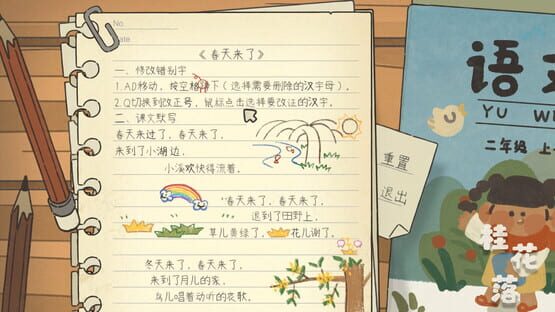 No.
Date
《春天来了》
一、修改错别字
1.AD移动，按空格键下（选择需要删除的汉字母）。
2.Q切换到改正号，鼠标点击选择要改正的汉字。
二、课文默写
春天来过了，春天来了，
来到了小湖边，
小溪欢快得流着，
"春天来了，春天来了，
退到了田野上，
草儿黄绿了，花儿谢了，
冬天来了，春天来了，
来到了月儿的家，
鸟儿唱着动听的夜歌，
重置
退出
语
YU
二年级 上
桂花落